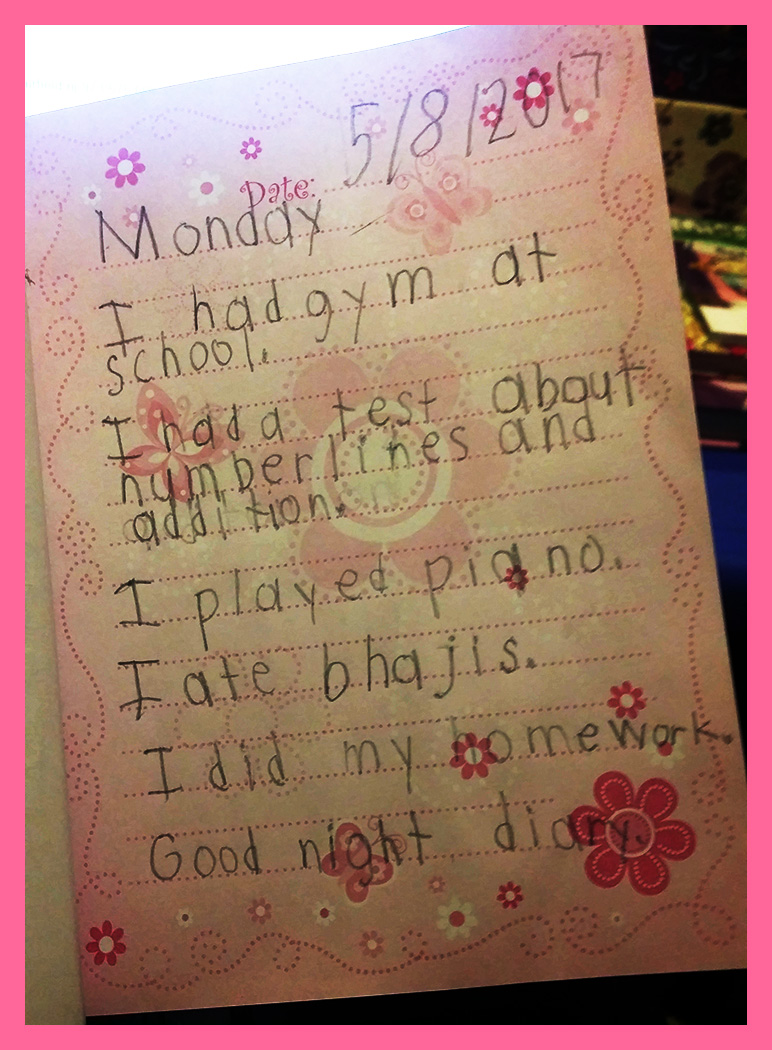 Date: 5/8/2017
Monday
I had gym at
school.
I had a test about
number lines and
addition.
I played piano.
I ate bhajis.
I did my homework.
Good night diary.